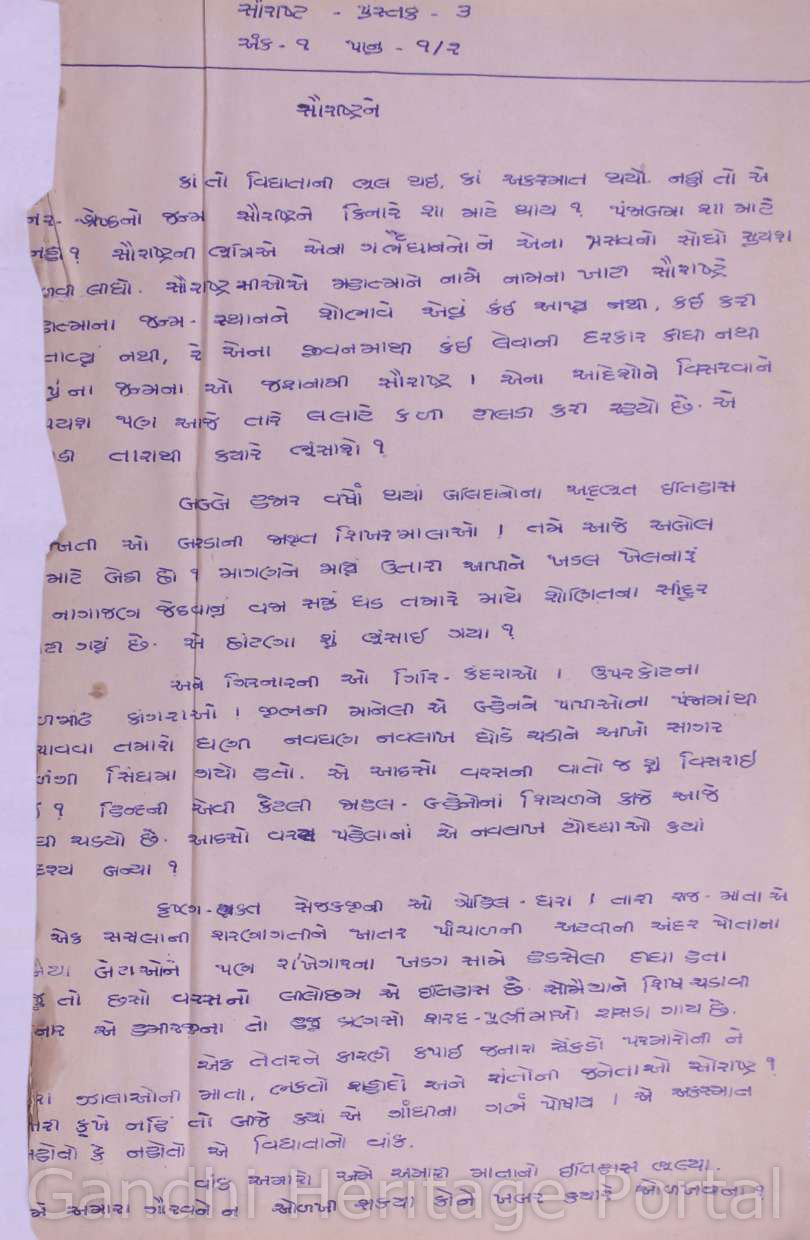 સૌરાષ્ટ્ર - પુસ્તક - ૩
અંક - ૧ પાનુ - ૧/૨
સૌરાષ્ટ્રને
કાં તો વિધાતાની ભૂલ થઇ, કાં અકસ્માત થયો. નહીં તો એ
નર - શ્રેષ્ઠનો જન્મ સૌરાષ્ટ્રને કિનારે શા માટે થાય ? પંજાબમા શા માટે
નહી ? સૌરાષ્ટ્રની ભૂમિએ એના ગર્ભાધાનનો ને એના પ્રસવનો સીધો સુયશ
લીધો. સૌરાષ્ટ્રવાસીઓએ મહાત્માને નામે નામના ખાટી સૌરાષ્ટ્રે
જન્મ - સ્થાનને શોભાવે એવું કંઈ આપ્યુ નથી, કઇ કરી
નથી, રે એના જીવનમાથી કંઈ લેવાની દરકાર કીધી નથી
ના જન્મના ઓ જશનામી સૌરાષ્ટ્ર ! એના આદેશોને વિસરવાને
પણ આજે તારે લલાટે કાળી ટીલડી કરી રહ્યો છે. એ
તારાથી ક્યારે ભૂંસાશે ?
બબ્બે હજાર વર્ષો થયાં બલિદાનોના અદ્ભૂત ઇતિહાસ
ઓ બરડાની જાગૃત શિખરમાલાઓ ! તમે આજે અબોલ
માટે બેઠી છો ? માગણને માથું ઉતારી આપીને ખડગ ખેલનારું
નાગાજણ જેઠવાનું વજ્ર સમું ધડ તમારે માથે શોણિતના સીંદુર
ગયું છે. એ છાંટણા શું ભૂંસાઈ ગયા ?
અને ગિરનારની ઓ ગિરિ - કંદરાઓ ! ઉપરકોટના
કાંગરાઓ ! જીભની માનેલી એ બ્હેનને પાપીઓના પંજામાંથી
તમારો ધણી નવઘણ નવલાખ ઘોડે ચડીને આખો સાગર
સિંધમા ગયો હતો. એ આઠસો વરસની વાતો જ શું વિસરાઈ
? હિન્દની એવી કેટલી જાહલ - બ્હેનોનાં શિયળને કાજે આજે
ચડયો છે. આઠસો વરસ પહેલાનાં એ નવલાખ યોધ્ધાઓ ક્યાં
બન્યા ?
કૃષ્ણ - ભક્ત સેજકજીની ઓ ગોહિલ - ધરા ! તારી રાજ - માતાએ
એક સસલાની શરણાગતીને ખાતર પાંચાળની અટવીની અંદર પોતાના
બેટાઓને પણ રા'ખેંગારના ખડગ સામે હડસેલી દીધા હતા
તો છસો વરસનો લીલોછમ એ ઇતિહાસ છે. સોમૈયાને શિષ ચડાવી
એ હમીરજીના તો હજુ ત્રણસો શરદ - પૂર્ણીમાઓ રાસડા ગાય છે.
એક તેતરને કારણે કપાઇ જનારા સેંકડો પરમારોની ને
ઝાલાઓની માતા, ભક્તો શહીદો અને સંતોની જનેતાઓ સોરાષ્ટ્ર ?
કૂખે નહિં તો બીજે ક્યાં એ ગાંધીના ગર્ભ પોષાય ! એ અકસ્માત
નહોતો કે નહોતો એ વિધાતાનો વાંક.
વાંક અમારો અમે અમારી માતાનો ઇતિહાસ ભૂલ્યા.
અમારા ગૌરવને ન ઓળખી શક્યા કોને ખબર ક્યારે ઓળખવાના ?
Gandhi Heritage Portal